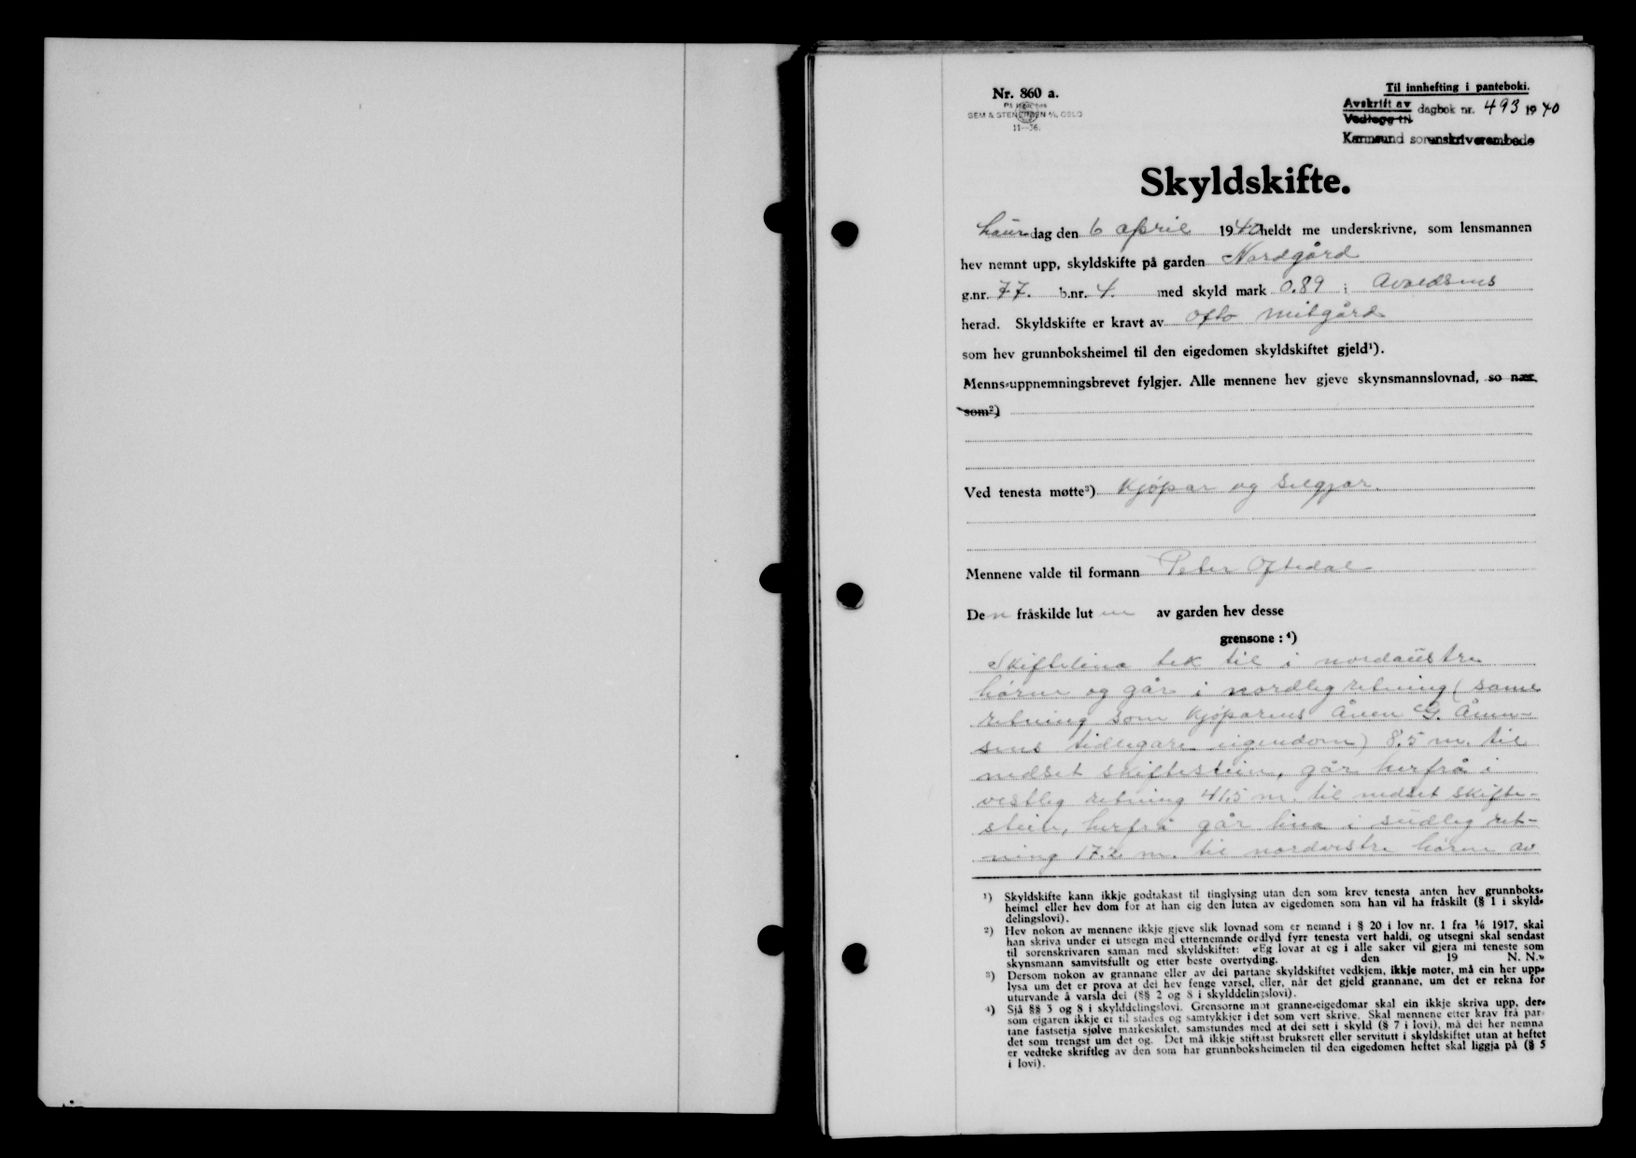 Nr. 860 a.
SEM & STENERSEN A/S, OSLO
11-36.
Til innhefting i panteboki.
Avskrift av dagbok nr. 493 1940
Vedlegg til
Karmsund sorenskriverembede
Skyldskifte.
Laurdag den 6 april 1940 heldt me underskrivne, som lensmannen
hev nemnt upp, skyldskifte på garden Nordgård
g.nr. 77. b.nr. 4. med skyld mark 0.89 i Avaldsnes
herad. Skyldskifte er kravt av Otto Mitgård
som hev grunnboksheimel til den eigedomen skyldskiftet gjeld¹).
Menns-uppnemningsbrevet fylgjer. Alle mennene hev gjeve skynsmannslovnad, so nær
som²)
Ved tenesta møtte³) Kjøpar og seljar.
Mennene valde til formann Peter Oftedal
Den fråskilde luten av garden hev desse
grensone : ⁴)
Skiftelina tek til i nordaustre
hørne og går i nordleg retning (same
retning som kjøparens Ånen G. Ånen-
sens tidlegare eigendom) 8.5 m. til
nedset skiftestein, går herfrå i
vestleg retning 41.5 m. til nedset skifte-
stein, herfrå går lina i sudleg ret-
ning 17.2 m. til nordvestre hørne av
¹) Skyldskifte kann ikkje godtakast til tinglysing utan den som krev tenesta anten hev grunnboks-
heimel eller hev dom for at han eig den luten av eigedomen som han vil ha fråskilt (§ 1 i skyld-
delingslovi).
²) Hev nokon av mennene ikkje gjeve slik lovnad som er nemnd i § 20 i lov nr. 1 fra 1/6 1917, skal
han skriva under ei utsegn med etternemnde ordlyd fyrr tenesta vert haldi, og utsegni skal sendast
til sorenskrivaren saman med skyldskiftet: «Eg lovar at eg i alle saker vil gjera mi teneste som
skynsmann samvitsfullt og etter beste overtyding. den 19 N. N.»
³) Dersom nokon av grannane eller av dei partane skyldskiftet vedkjem, ikkje møter, må ein her upp-
lysa um det er prova at dei hev fenge varsel, eller, når det gjeld grannane, um det er rekna for
uturvande å varsla dei (§§ 2 og 8 i skylddelingslovi).
⁴) Sjå §§ 3 og 8 i skylddelingslovi. Grensorne mot granne-eigedomar skal ein ikkje skriva upp, der-
som eigaren ikkje er til stades og samtykkjer i det som vert skrive. Skal mennene etter krav frå par-
tane fastsetja sjølve markeskilet, samstundes med at dei sett i skyld (§ 7 i lovi), må dei her nemna
det som trengst um det og. Det må ikkje stiftast bruksrett eller servitutt i skyldskiftet utan at heftet
er vedteke skriftleg av den som har grunnboksheimelen til den eigedomen heftet skal liggja på (§ 5
i lovi).